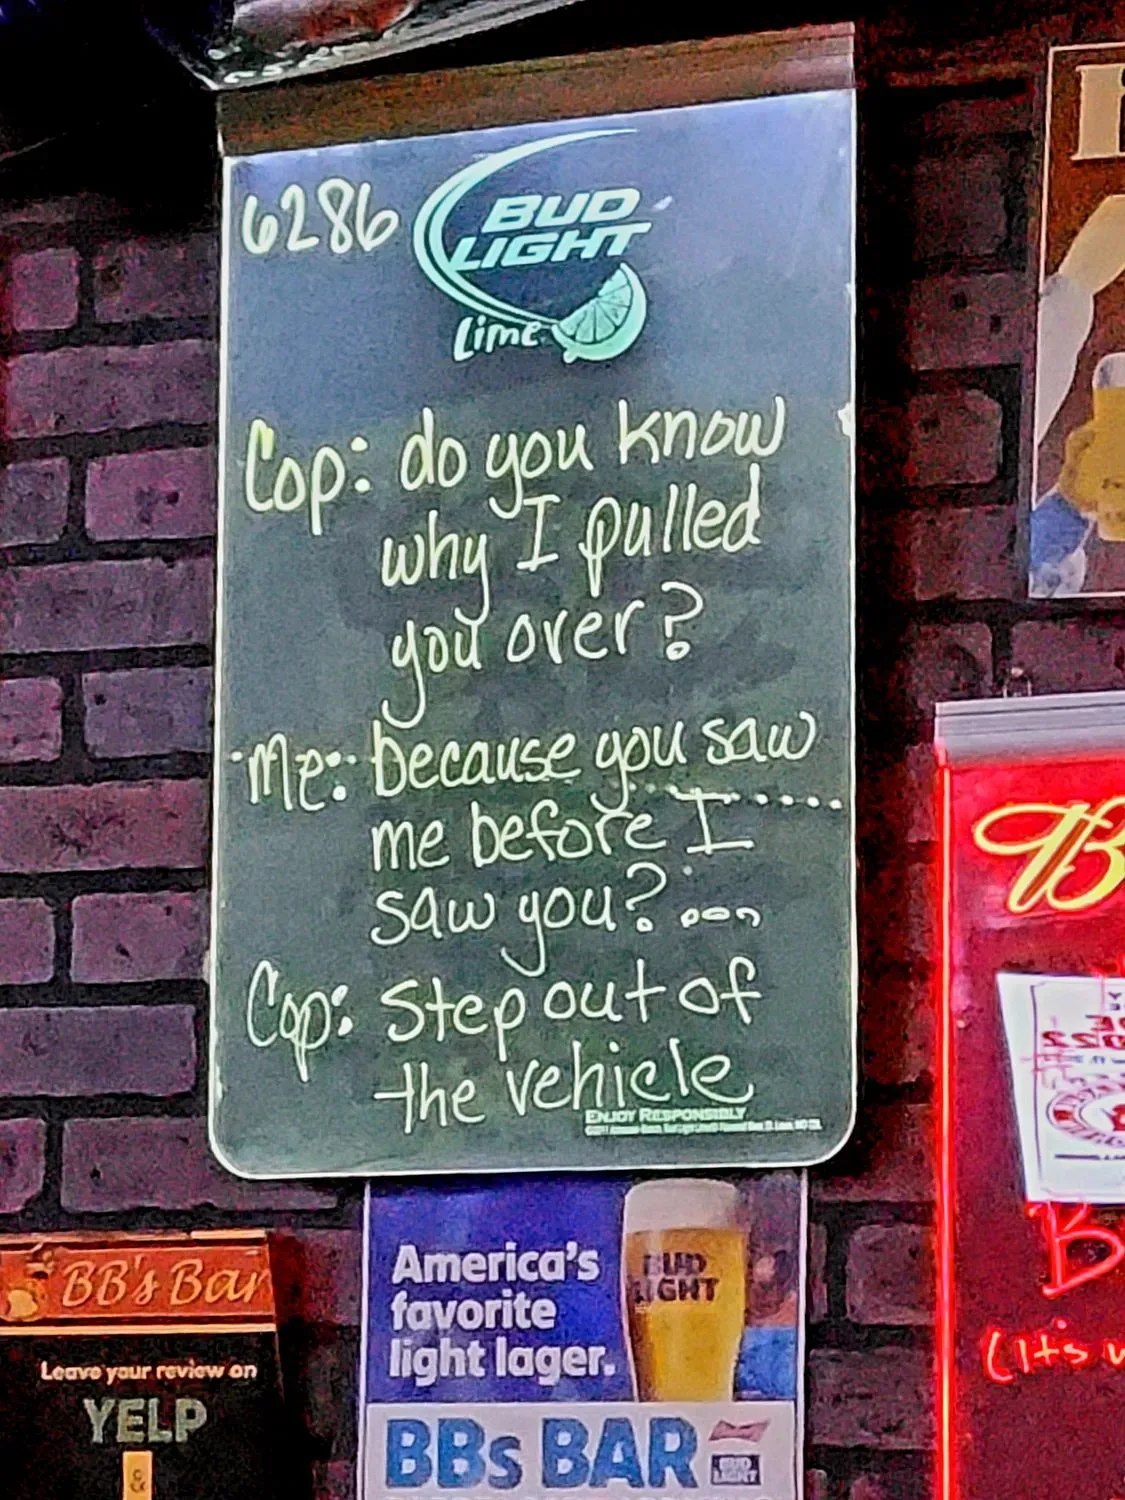 6286
BUD
LIGHT
Lime
Cop: do you know
why I pulled
you over?
Me: because you saw
me before I
saw you? ...
Cop: Step out of
the vehicle
ENJOY RESPONSIBLY
America's
favorite
light lager.
BUD
LIGHT
BBs BAR
BUD
LIGHT
BB's Bar
Leave your review on
YELP
&
B
B
(It's